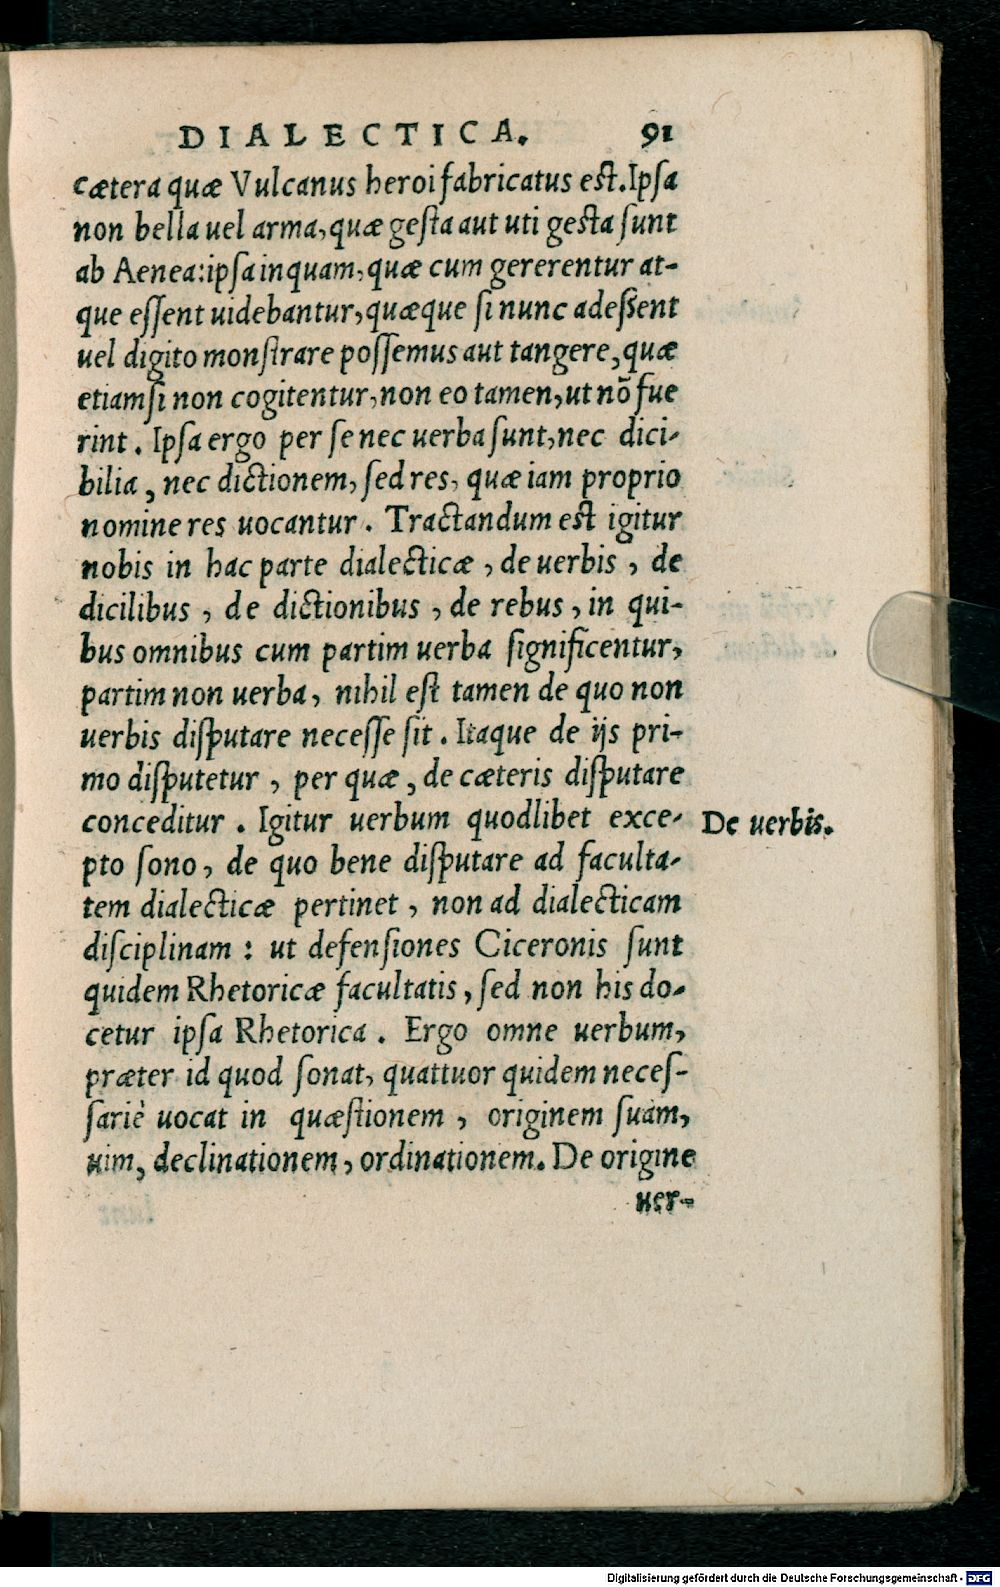 DIALECTICA. 91
cætera quæ Vulcanus heroi fabricatus est. Ipsa
non bella uel arma, quæ gesta aut uti gesta sunt
ab Aenea: ipsa inquam, quæ cum gererentur at-
que essent uidebantur, quæque si nunc adeßent
uel digito monstrare possemus aut tangere, quæ
etiamsi non cogitentur, non eo tamen, ut nõ fue
rint. Ipsa ergo per se nec uerba sunt, nec dici-
bilia, nec dictionem, sed res, quæ iam proprio
nomine res uocantur. Tractandum est igitur
nobis in hac parte dialecticæ, de uerbis, de
dicilibus, de dictionibus, de rebus, in qui-
bus omnibus cum partim uerba significentur,
partim non uerba, nihil est tamen de quo non
uerbis disputare necesse sit. Itaque de ijs pri-
mo disputetur, per quæ, de cæteris disputare
conceditur. Igitur uerbum quodlibet exce-
De uerbis.
pto sono, de quo bene disputare ad faculta-
tem dialecticæ pertinet, non ad dialecticam
disciplinam: ut defensiones Ciceronis sunt
quidem Rhetoricæ facultatis, sed non his do-
cetur ipsa Rhetorica. Ergo omne uerbum,
præter id quod sonat, quattuor quidem neces-
sariè uocat in quæstionem, originem suam,
uim, declinationem, ordinationem. De origine
uer-
Digitalisierung gefördert durch die Deutsche Forschungsgemeinschaft - DFG